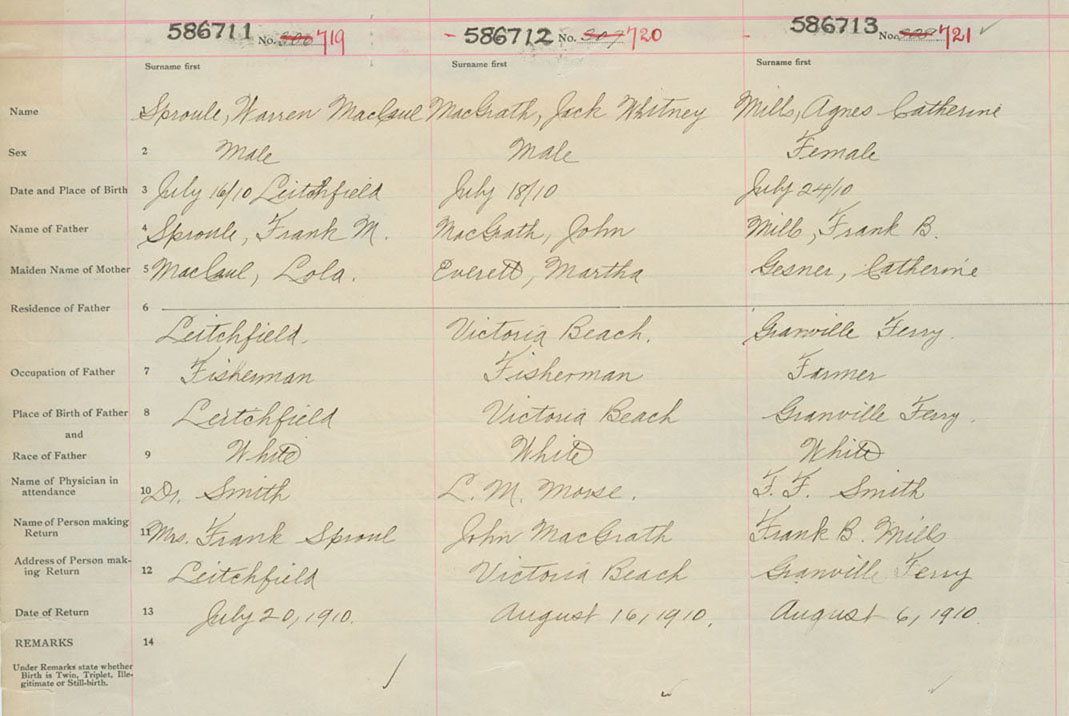 586711 No. 719 586712 No. 720 586713 No. 721
Surname first Surname first Surname first
Name 1 Sproule, Warren MacCaul MacGrath, Jack Whitney Mills, Agnes Catherine
Sex 2 Male Male Female
Date and Place of Birth 3 July 16/10 Leitchfield July 18/10 July 24/10
Name of Father 4 Sproule, Frank M. MacGrath, John Mills, Frank B.
Maiden Name of Mother 5 MacCaul, Lola. Everett, Martha Gesner, Catherine
Residence of Father 6
Leitchfield. Victoria Beach. Granville Ferry.
Occupation of Father 7 Fisherman Fisherman Farmer
Place of Birth of Father 8 Leitchfield Victoria Beach Granville Ferry.
and
Race of Father 9 White White White
Name of Physician in
attendance 10 Dr. Smith L. M. Morse. F. F. Smith
Name of Person making
Return 11 Mrs. Frank Sproul John MacGrath Frank B. Mills
Address of Person mak-
ing Return 12 Leitchfield Victoria Beach Granville Ferry
Date of Return 13 July 20, 1910. August 16, 1910. August 6, 1910
REMARKS 14
Under Remarks state whether
Birth is Twin, Triplet, Ille-
gitimate or Still-birth.